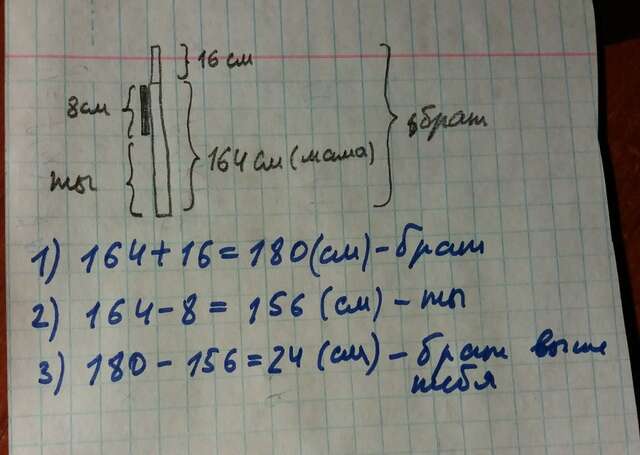 16 см
8см
164 см (мама)
брат
ты
1) 164 + 16 = 180 (см) - брат
2) 164 - 8 = 156 (см) - ты
3) 180 - 156 = 24 (см) - брат выше
тебя